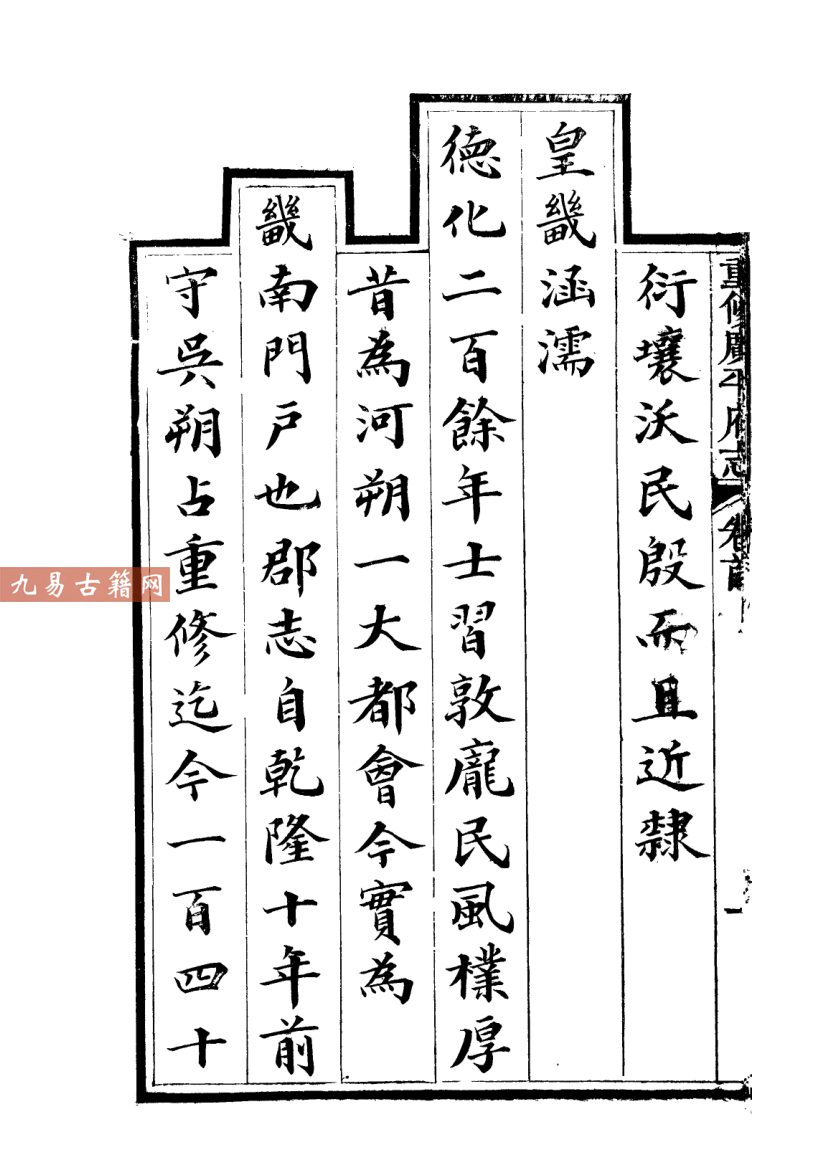 重修廣平府志 卷首 一
衍壤沃民殷而且近隸
皇畿涵濡
德化二百餘年士習敦龐民風樸厚
昔為河朔一大都會今實為
畿南門戶也郡志自乾隆十年前
守吳朔占重修迄今一百四十
九易古籍网